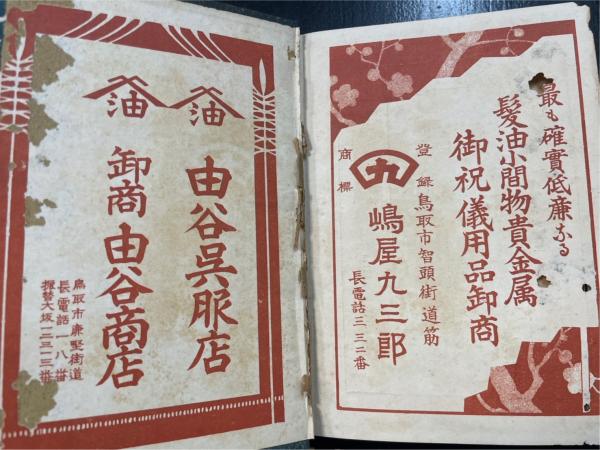 最も確實低廉なる
髪油小間物貴金属
御祝儀用品卸商
登録
商標
九
鳥取市智頭街道筋
嶋屋九三郎
長電話三三二番
油
由谷呉服店
油
卸商由谷商店
鳥取市廉堅街道
長電話一八番
振替大坂一三一三番